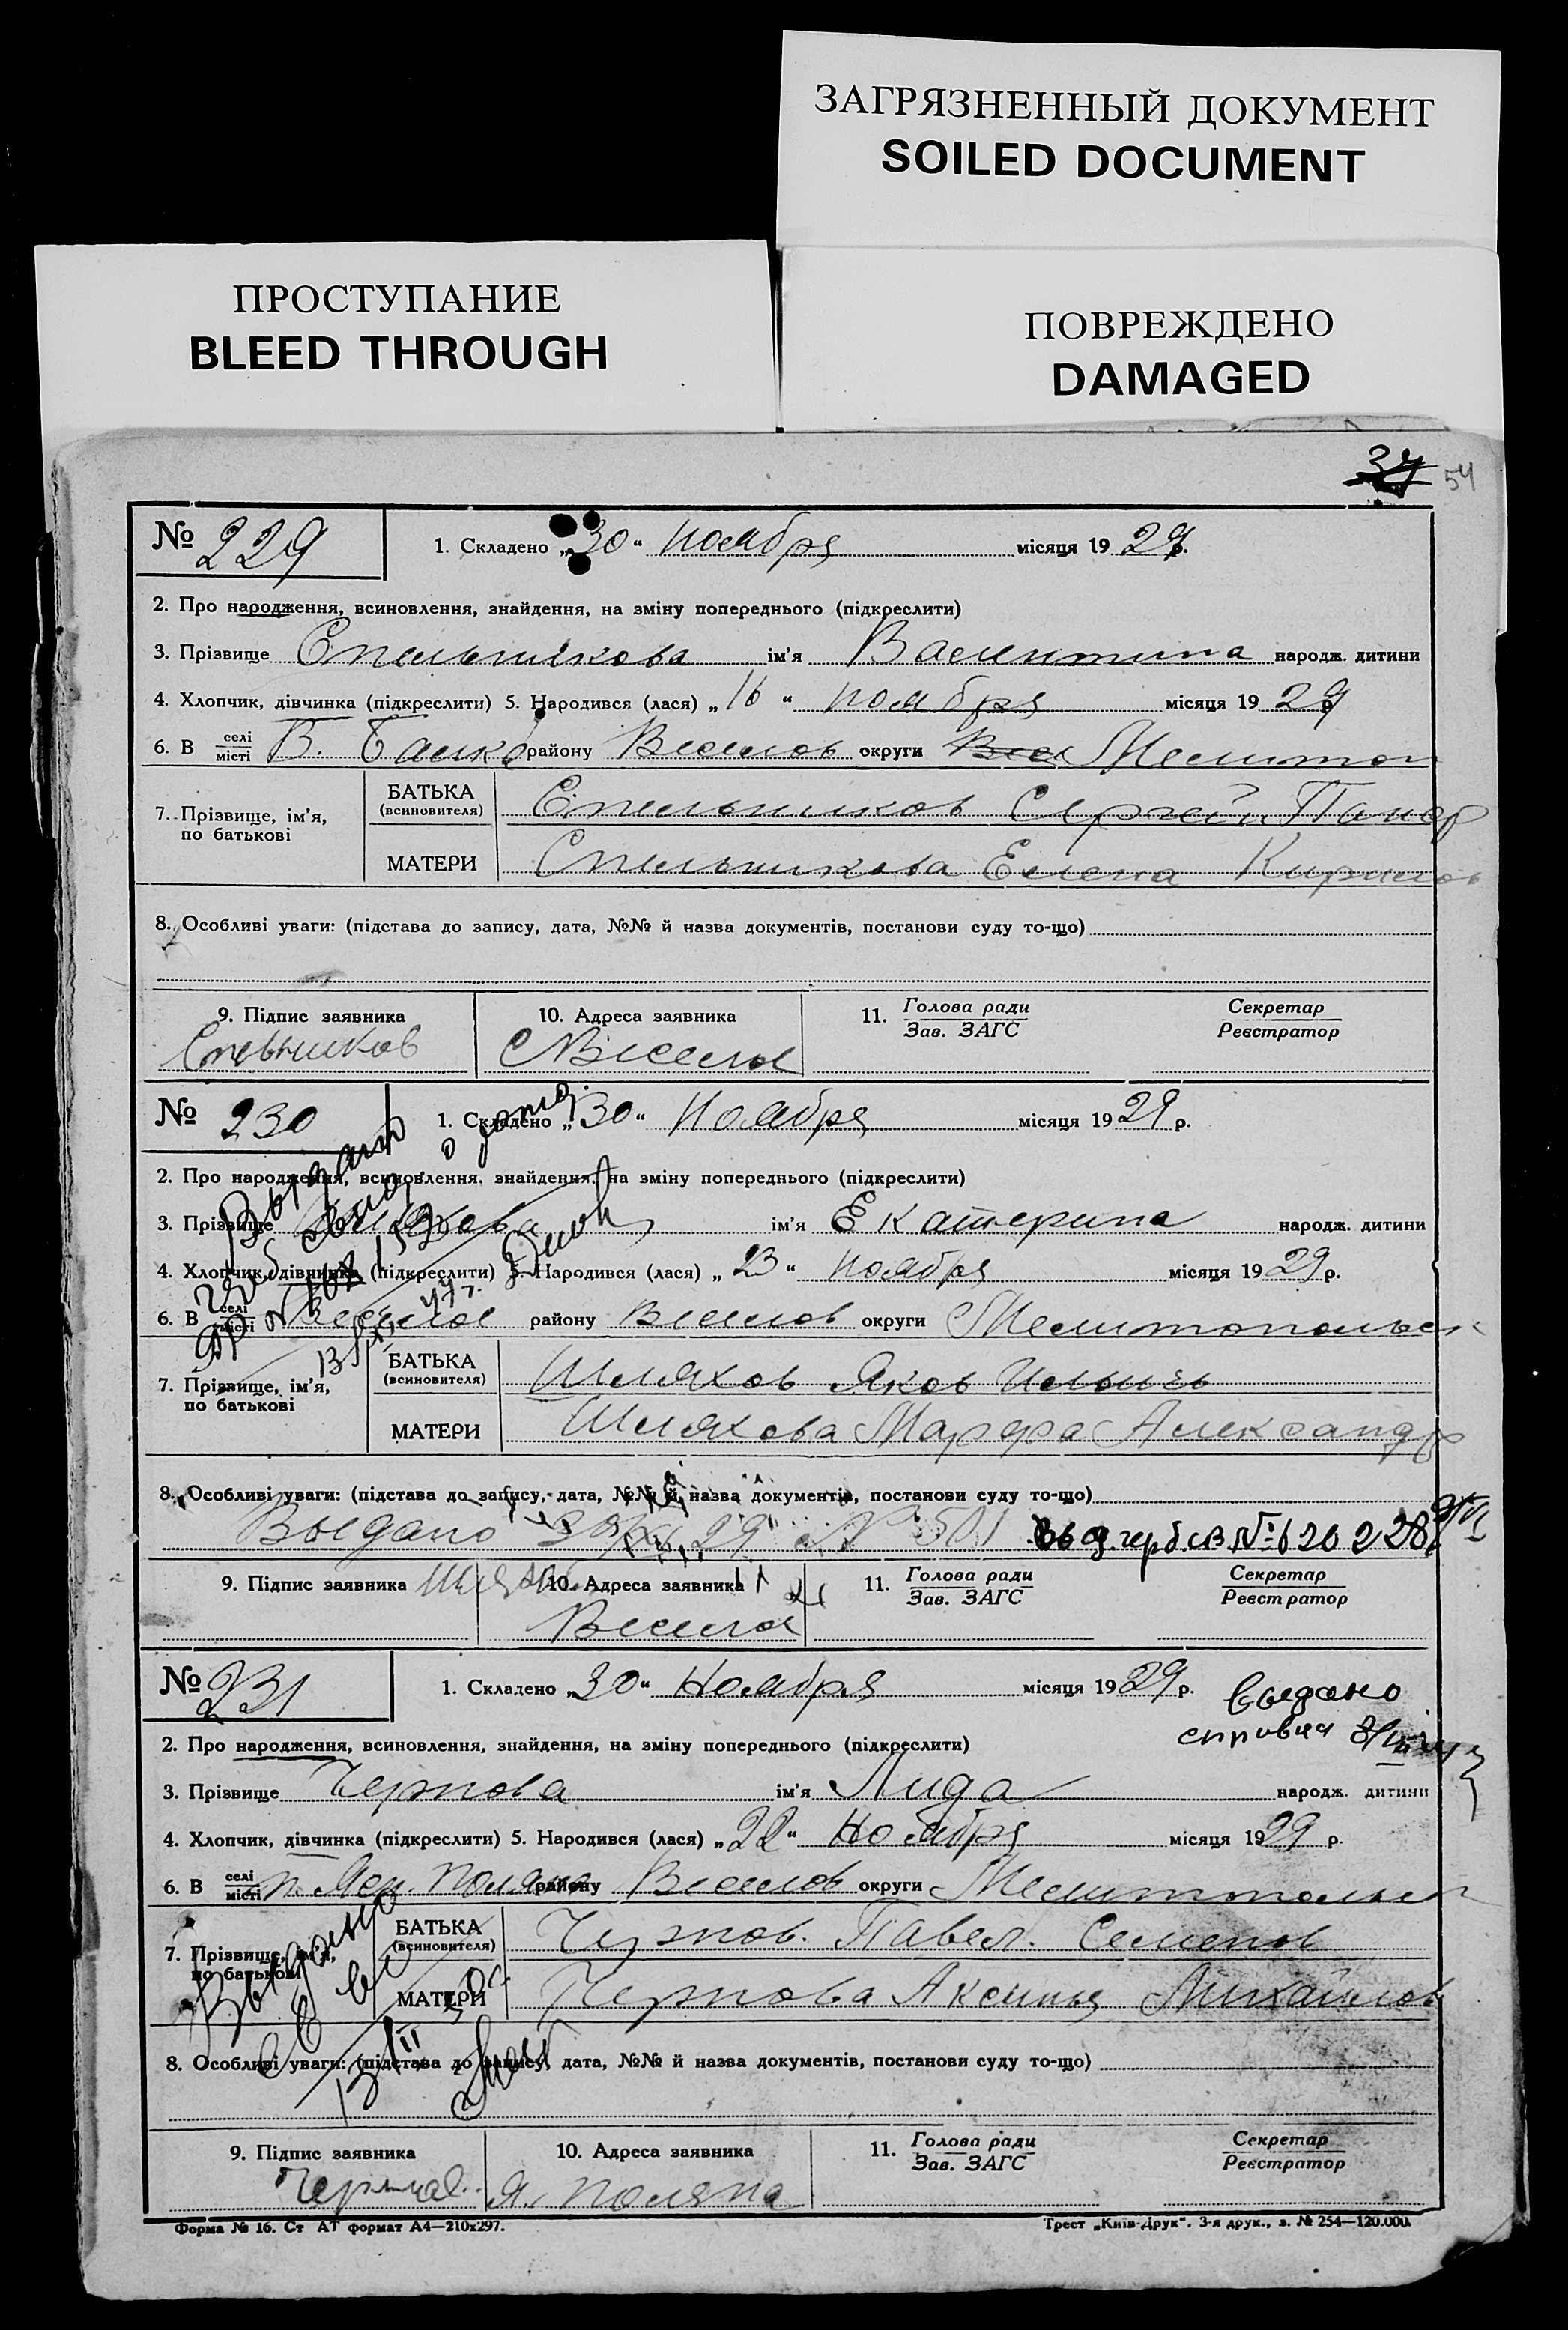 ЗАГРЯЗНЕННЫЙ ДОКУМЕНТ
SOILED DOCUMENT
ПРОСТУПАНИЕ
BLEED THROUGH
ПОВРЕЖДЕНО
DAMAGED
37 54
№ 229 1. Складено „30“ ноября місяця 1929 р.
2. Про народження, всиновлення, знайдення, на зміну попереднього (підкреслити)
3. Прізвище ім'я Валентина народж. дитини
4. Хлопчик, дівчинка (підкреслити) 5. Народився (лася) „16“ ноября місяця 1929
6. В селі місті В. району Веселов округи Мелитоп
7. Прізвище, ім'я, по батькові
БАТЬКА (всиновителя) Сергей
МАТЕРИ Елена Кирилов
8. Особливі уваги: (підстава до запису, дата, №№ й назва документів, постанови суду то-що)
9. Підпис заявника 10. Адреса заявника 11. Голова ради Зав. ЗАГС Секретар Реєстратор
С Веселое
№ 230 1. Складено „30“ Ноября місяця 1929 р.
2. Про народження, всиновлення, знайдення, на зміну попереднього (підкреслити)
3. Прізвище Шляхова ім'я Екатерина народж. дитини
4. Хлопчик, дівчинка (підкреслити) 5. Народився (лася) „23“ ноября місяця 1929 р.
6. В селі місті Веселое району Веселов округи Мелитопольск
7. Прізвище, ім'я, по батькові
БАТЬКА (всиновителя) Шляхов Яков Ильич
МАТЕРИ Шляхова Марфа Александр
8. Особливі уваги: (підстава до запису, дата, №№ й назва документів, постанови суду то-що)
Выдано 29 № 501
9. Підпис заявника 10. Адреса заявника 11. Голова ради Зав. ЗАГС Секретар Реєстратор
Веселое
№ 231 1. Складено „30“ Ноября місяця 1929 р.
выдано
2. Про народження, всиновлення, знайдення, на зміну попереднього (підкреслити)
3. Прізвище Чернова ім'я Лида народж. дитини
4. Хлопчик, дівчинка (підкреслити) 5. Народився (лася) „22“ Ноября місяця 1929 р.
6. В селі місті п. Ясн. Поляна району Веселов округи Мелитопольск
7. Прізвище, ім'я, по батькові
БАТЬКА (всиновителя) Чернов Павел Семенов
МАТЕРИ Чернова Аксинья Михайлов
Выдано
8. Особливі уваги: (підстава до запису, дата, №№ й назва документів, постанови суду то-що)
9. Підпис заявника 10. Адреса заявника 11. Голова ради Зав. ЗАГС Секретар Реєстратор
Я. Поляна
Форма № 16. Ст АТ формат А4—210х297. Трест „Київ-Друк“. 3-я друк., з. № 254—120.000.